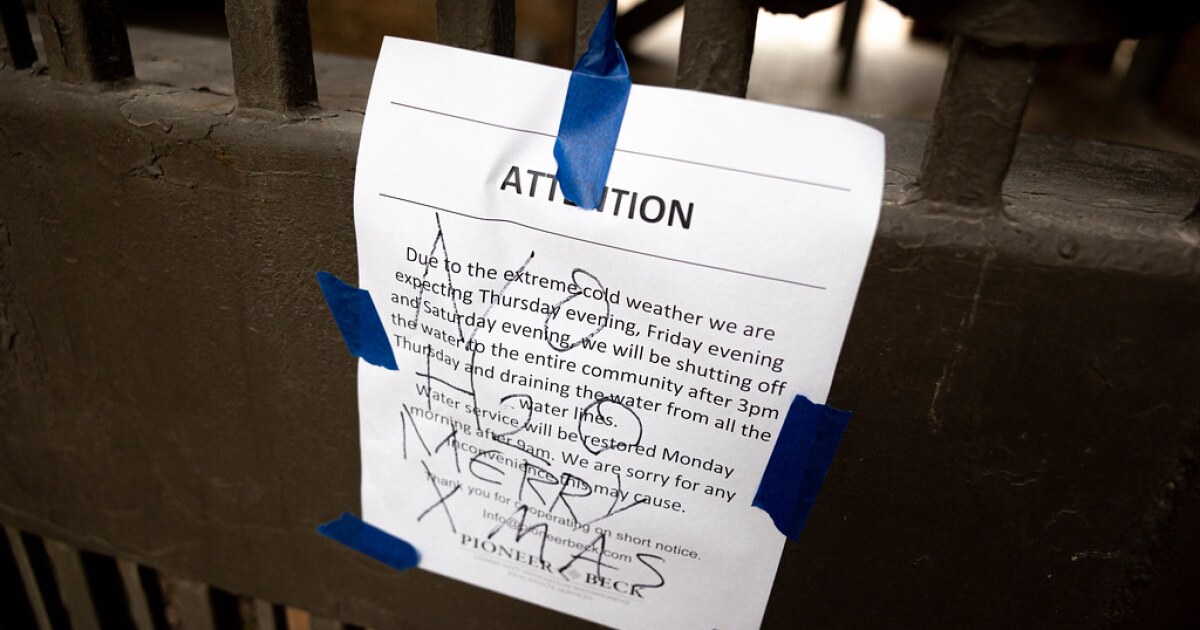 ATTENTION
Due to the extreme cold weather we are
expecting Thursday evening, Friday evening
and Saturday evening, we will be shutting off
the water to the entire community after 3pm
Thursday and draining the water from all the
water lines.
Water service will be restored Monday
morning after 9am. We are sorry for any
inconvenience this may cause.
Thank you for cooperating on short notice.
Info@pioneerbeck.com
PIONEER BECK
NO
H2O
MERRY
XMAS